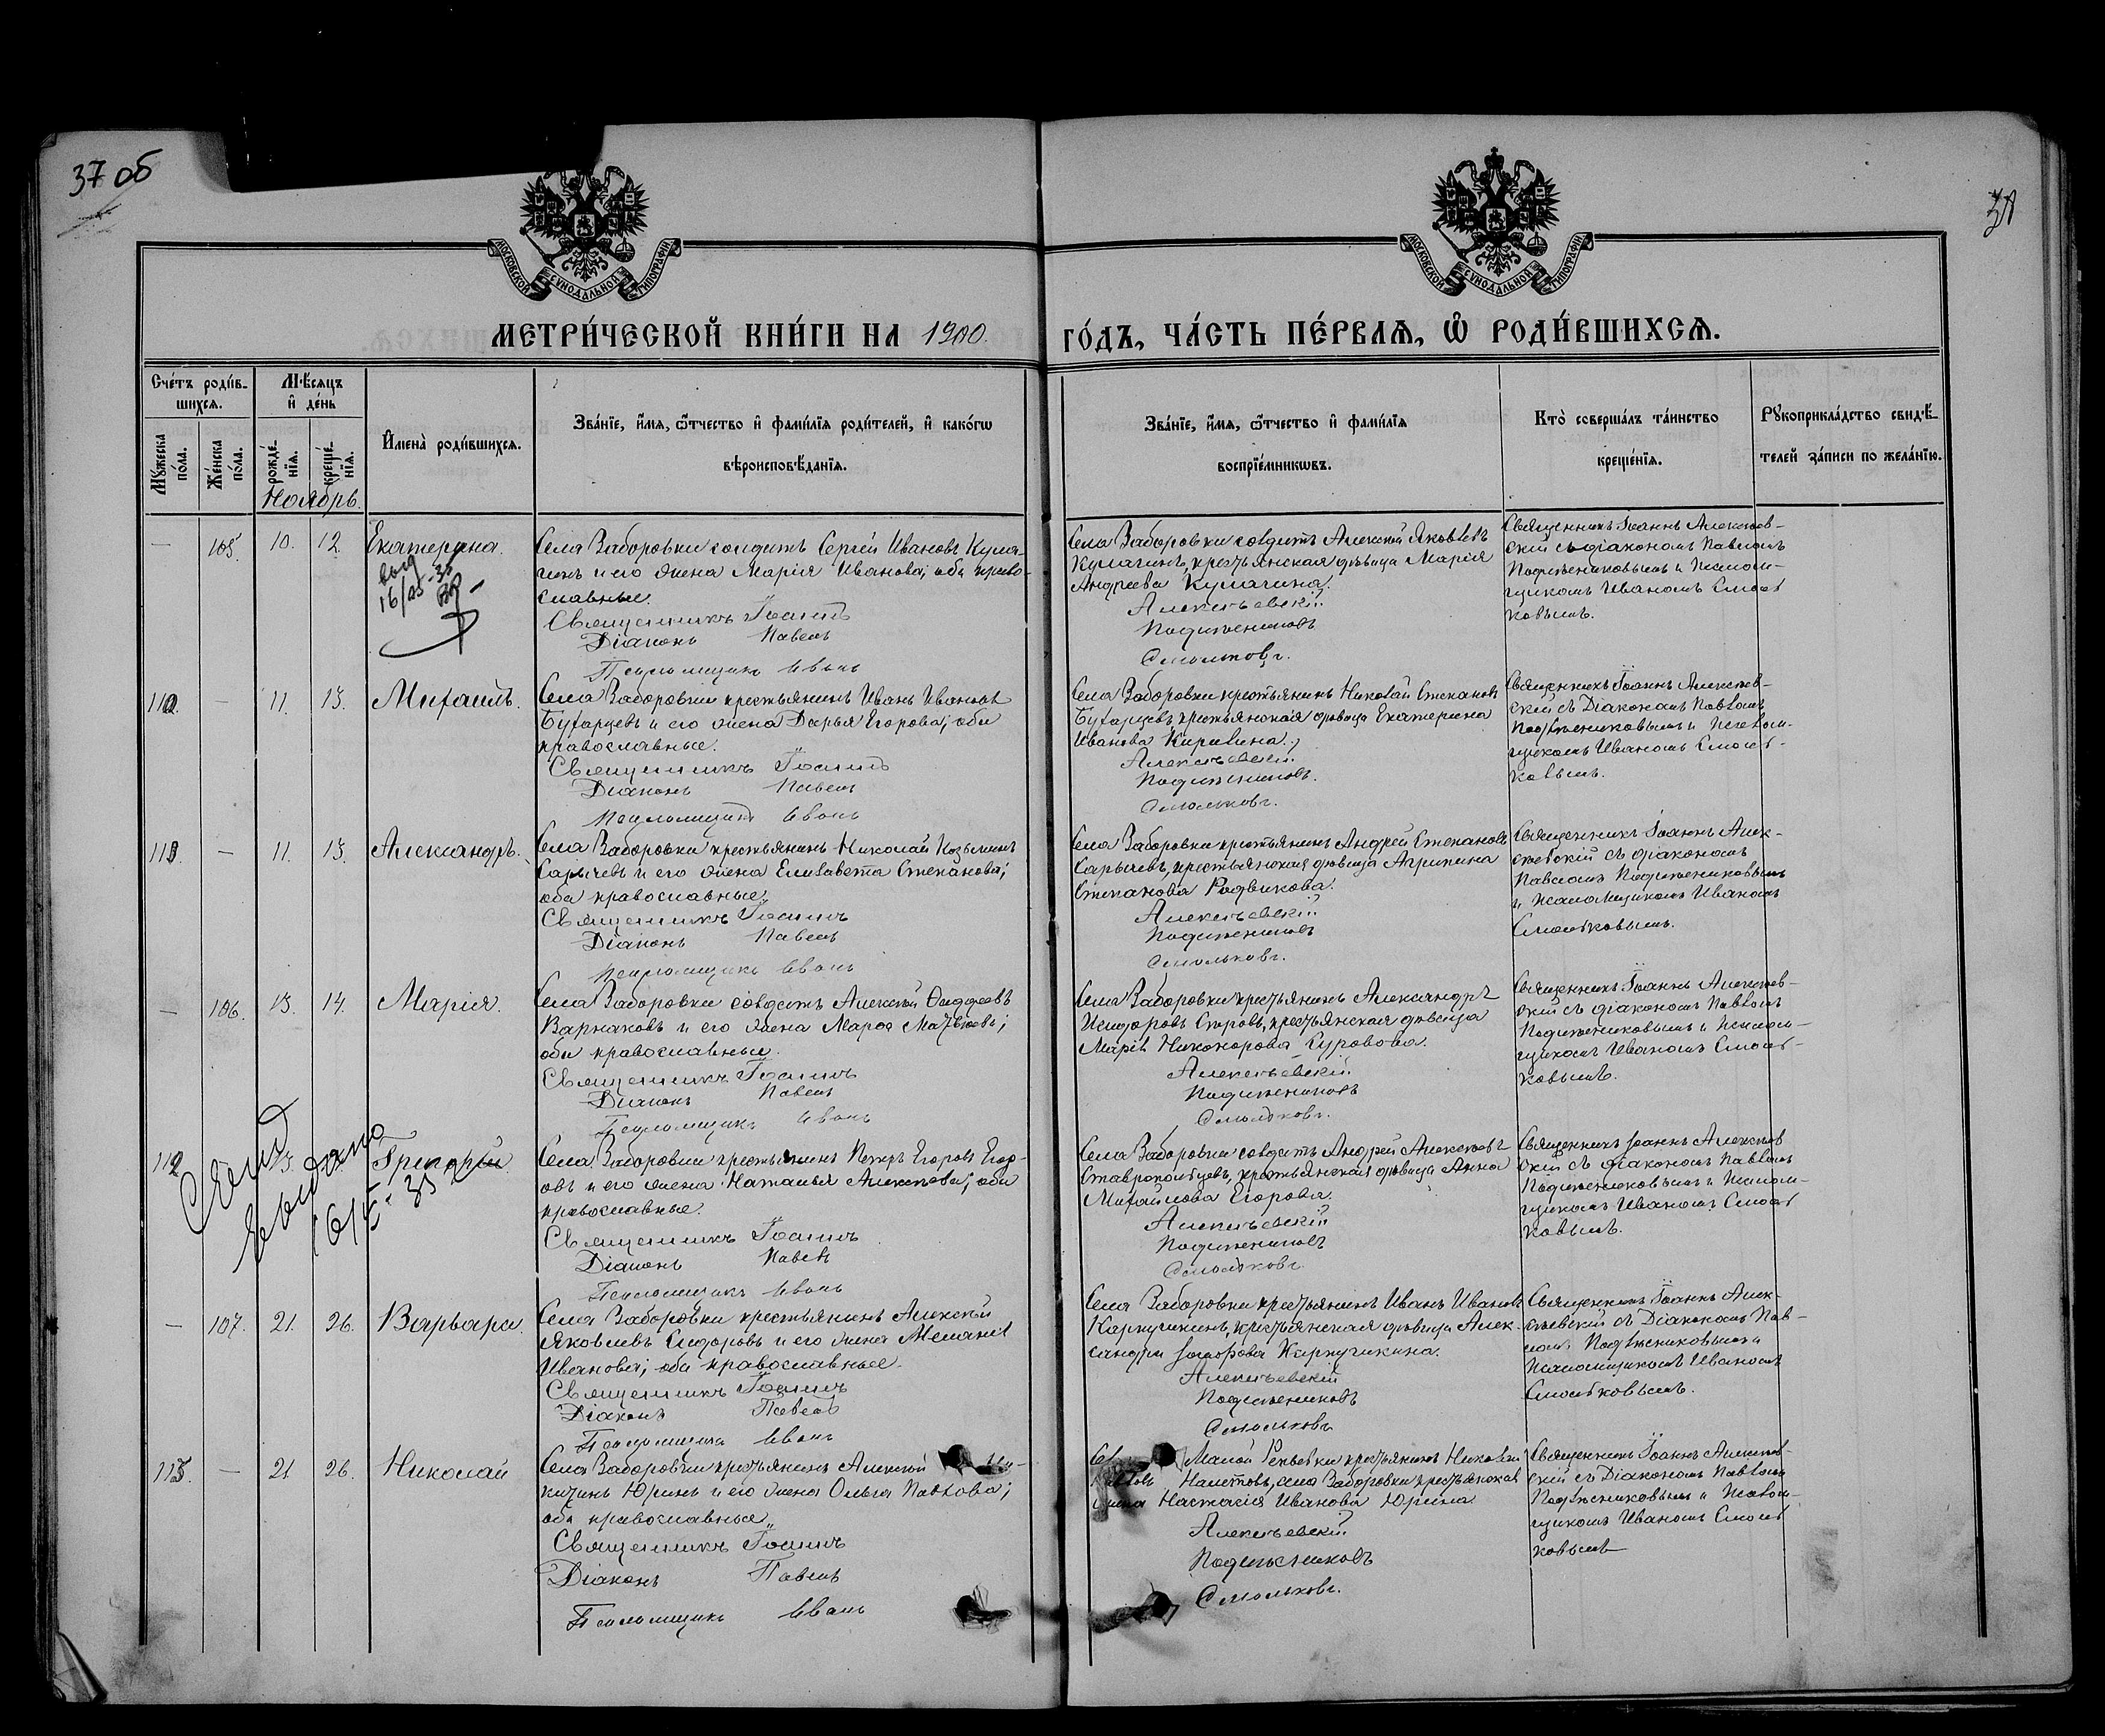 37 об
38
МОСКОВСКОЙ СѴНОДАЛЬНОЙ ТИПОГРАФІИ
МОСКОВСКОЙ СѴНОДАЛЬНОЙ ТИПОГРАФІИ
МЕТРИ́ЧЕСКОЙ КНИ́ГИ НА 1900.
ГО́ДЪ, ЧА́СТЬ ПЕ́РВАѦ, Ѽ РОДИ́ВШИХСѦ.
Сче́тъ роди́в-
шихсѧ.
Мꙋжеска по́ла.
Же́нска по́ла.
Мѣ́сѧцъ и҆ де́нь
рожде́нїѧ.
креще́нїѧ.
И҆мена̀ роди́вшихсѧ.
Зва́нїе, и҆́мѧ, ѻ҆́тчество и҆ фами́лїѧ роди́телей, и҆ како́гѡ
вѣроисповѣ́данїѧ.
Зва́нїе, и҆́мѧ, ѻ҆́тчество и҆ фами́лїѧ
воспрїе́мникѡвъ.
Кто̀ соверша́лъ та́инство
креще́нїѧ.
Рꙋкоприкла́дство свидѣ́-
телей за́писи по жела́нїю.
Ноябрь.
— 105. 10. 12. Екатерина.
выд
16/
Села Заборовки солдатъ Сергѣй Ивановъ Кула-
гинъ и его жена Марія Иванова; оба право-
славные.
Священникъ Іоаннъ
Діаконъ Павелъ
Псаломщикъ Иванъ
Села Заборовки солдатъ Алексѣй Яковлевъ
Кулагинъ, крестьянская дѣвица Марія
Андреева Кулагина.
Алексѣевскій
Подлѣсниковъ
Смольковъ.
Священникъ Іоаннъ Алексѣев-
скій съ діакономъ Павломъ
Подлѣсниковымъ и псалом-
щикомъ Иваномъ Смоль
ковымъ.
110. — 11. 13. Михаилъ.
Села Заборовки крестьянинъ Иванъ Ивановъ
Бухарцевъ и его жена Дарья Егорова; оба
православные.
Священникъ Іоаннъ
Діаконъ Павелъ
Псаломщикъ Иванъ
Села Заборовки крестьянинъ Николай Степановъ
Бухарцевъ, крестьянская дѣвица Екатерина
Иванова
Алексѣевскій
Подлѣсниковъ.
Смольковъ.
Священникъ Іоаннъ Алексѣев-
скій съ Діакономъ Павломъ
Подлѣсниковымъ и псалом-
щикомъ Иваномъ Смоль-
ковымъ.
— 11. 13. Александръ.
Села Заборовки крестьянинъ Николай Козьминъ
Сарычевъ и его жена Елизавета Степанова;
оба православные.
Священникъ Іоаннъ
Діаконъ Павелъ
Псаломщикъ Иванъ
Села Заборовки крестьянинъ Андрей Степановъ
Сарычевъ, крестьянская дѣвица Агрипина
Степанова Родникова.
Алексѣевскій
Подлѣсниковъ
Смольковъ.
Священникъ Іоаннъ Алек-
сѣевскій съ діакономъ
Павломъ Подлѣсниковымъ
и псаломщикомъ Иваномъ
Смольковымъ.
— 106. 13. 14. Марія.
Села Заборовки солдатъ Алексѣй Фаддеевъ
Варнаковъ и его жена Матвѣева;
оба православные.
Священникъ Іоаннъ
Діаконъ Павелъ
Псаломщикъ Иванъ
Села Заборовки крестьянинъ Александръ
Исидоровъ крестьянская дѣвица
Марія Никонорова
Алексѣевскій
Подлѣсниковъ
Смольковъ.
Священникъ Іоаннъ Алексѣев-
скій съ діакономъ Павломъ
Подлѣсниковымъ и псалом-
щикомъ Иваномъ Смоль-
ковымъ.
112 Григорій.
выдано
16/V-35
Села Заборовки крестьянинъ Петръ Егоровъ Егор-
овъ и его жена Наталья Алексѣева; оба
православные.
Священникъ Іоаннъ
Діаконъ Павелъ
Псаломщикъ Иванъ
Села Заборовки солдатъ Андрей Алексѣевъ
Ставропольцевъ, крестьянская дѣвица Анна
Михайлова Егорова.
Алексѣевскій
Подлѣсниковъ
Смольковъ.
Священникъ Іоаннъ Алексѣев
скій съ діакономъ Павломъ
Подлѣсниковымъ и псалом-
щикомъ Иваномъ Смоль
ковымъ.
— 107. 21. 26. Варвара.
Села Заборовки крестьянинъ Алексѣй
Яковлевъ Сидоровъ и его жена Меланія
Иванова; оба православные.
Священникъ Іоаннъ
Діаконъ Павелъ
Псаломщикъ Иванъ
Села Заборовки крестьянинъ Иванъ Ивановъ
Карпучкинъ, крестьянская дѣвица Алек-
сандра Карпучкина.
Алексѣевскій
Подлѣсниковъ
Смольковъ
Священникъ Іоаннъ Алек-
сѣевскій съ Діакономъ Пав-
ломъ Подлѣсниковымъ и
псаломщикомъ Иваномъ
Смольковымъ.
113. — 21 26. Николай
Села Заборовки крестьянинъ Алексѣй
Юринъ и его жена Ольга Павлова;
оба православные.
Священникъ Іоаннъ
Діаконъ Павелъ
Псаломщикъ Иванъ
Малой Репьевки крестьянинъ Николай
села Заборовки крестьянская
жена Настасія Иванова Юрина
Алексѣевскій
Подлѣсниковъ
Смольковъ.
Священникъ Іоаннъ Алексѣев-
скій съ Діакономъ Павломъ
Подлѣсниковымъ и псалом-
щикомъ Иваномъ Смоль
ковымъ